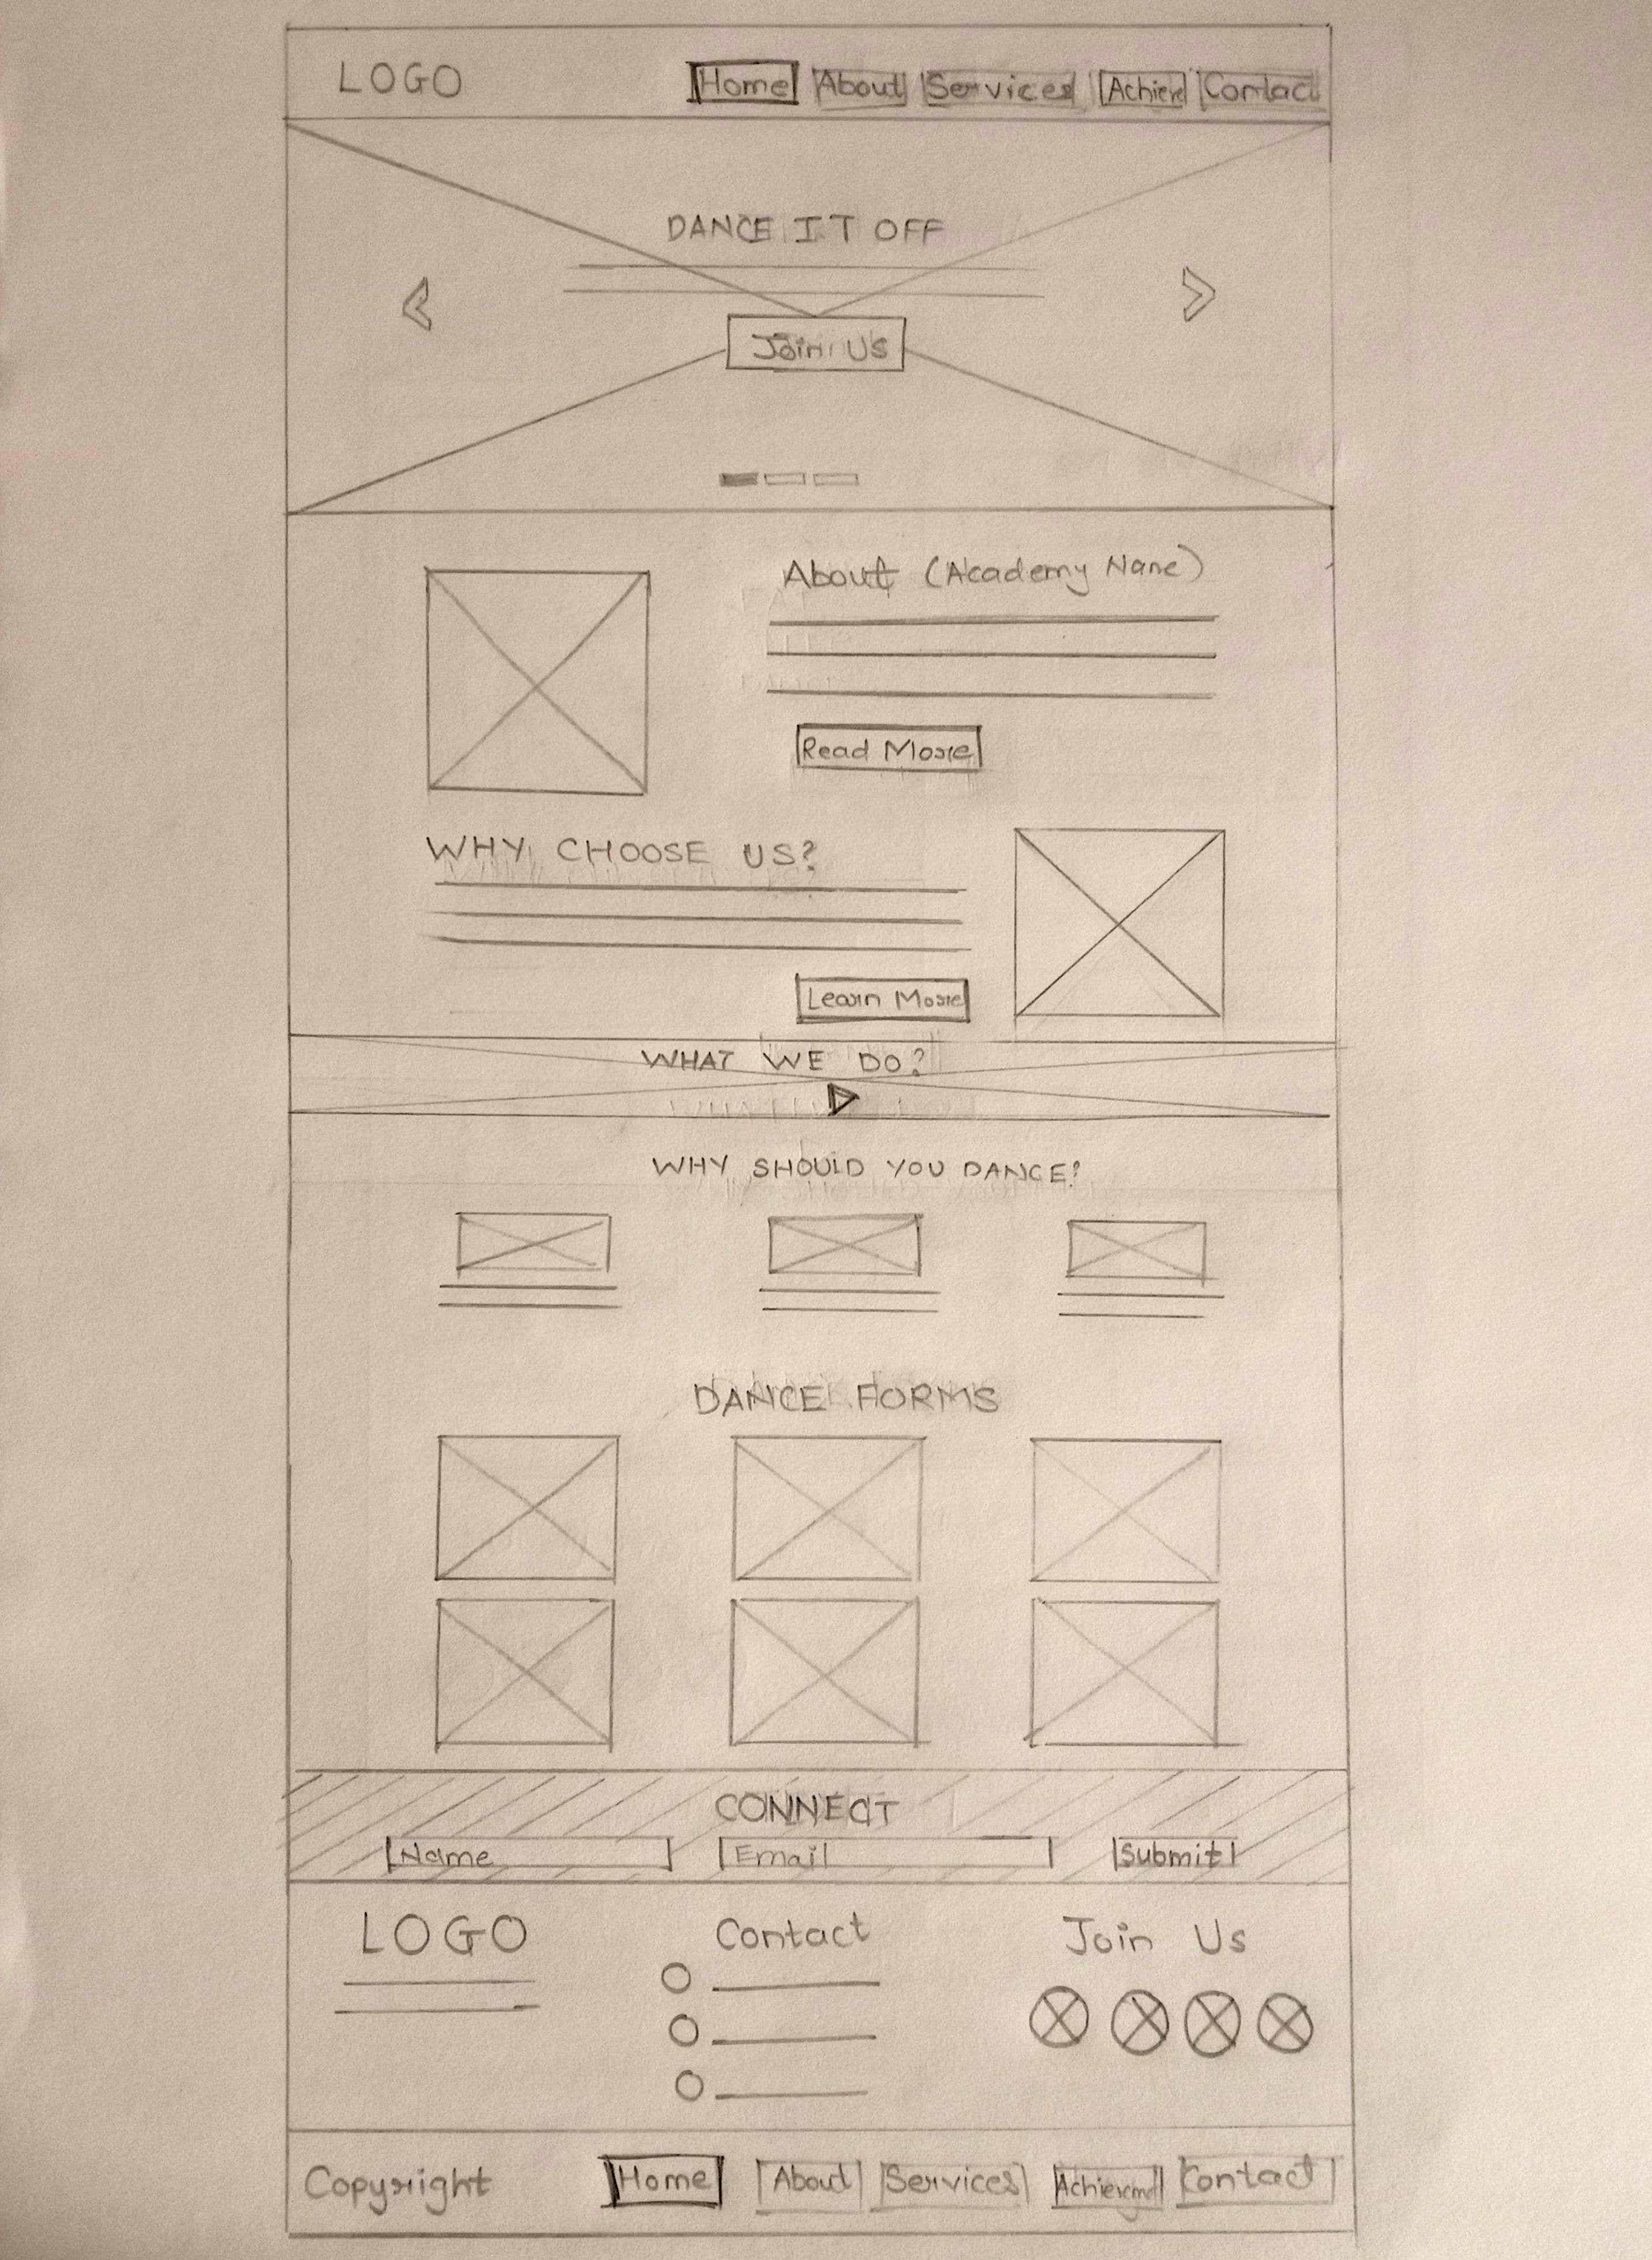 LOGO Home About Services Achieve Contact
DANCE IT OFF
Join Us
About (Academy Name)
Read More
WHY CHOOSE US?
Learn More
WHAT WE DO?
WHY SHOULD YOU DANCE?
DANCE FORMS
CONNECT
Name Email Submit
LOGO Contact Join Us
Copyright Home About Services Contact